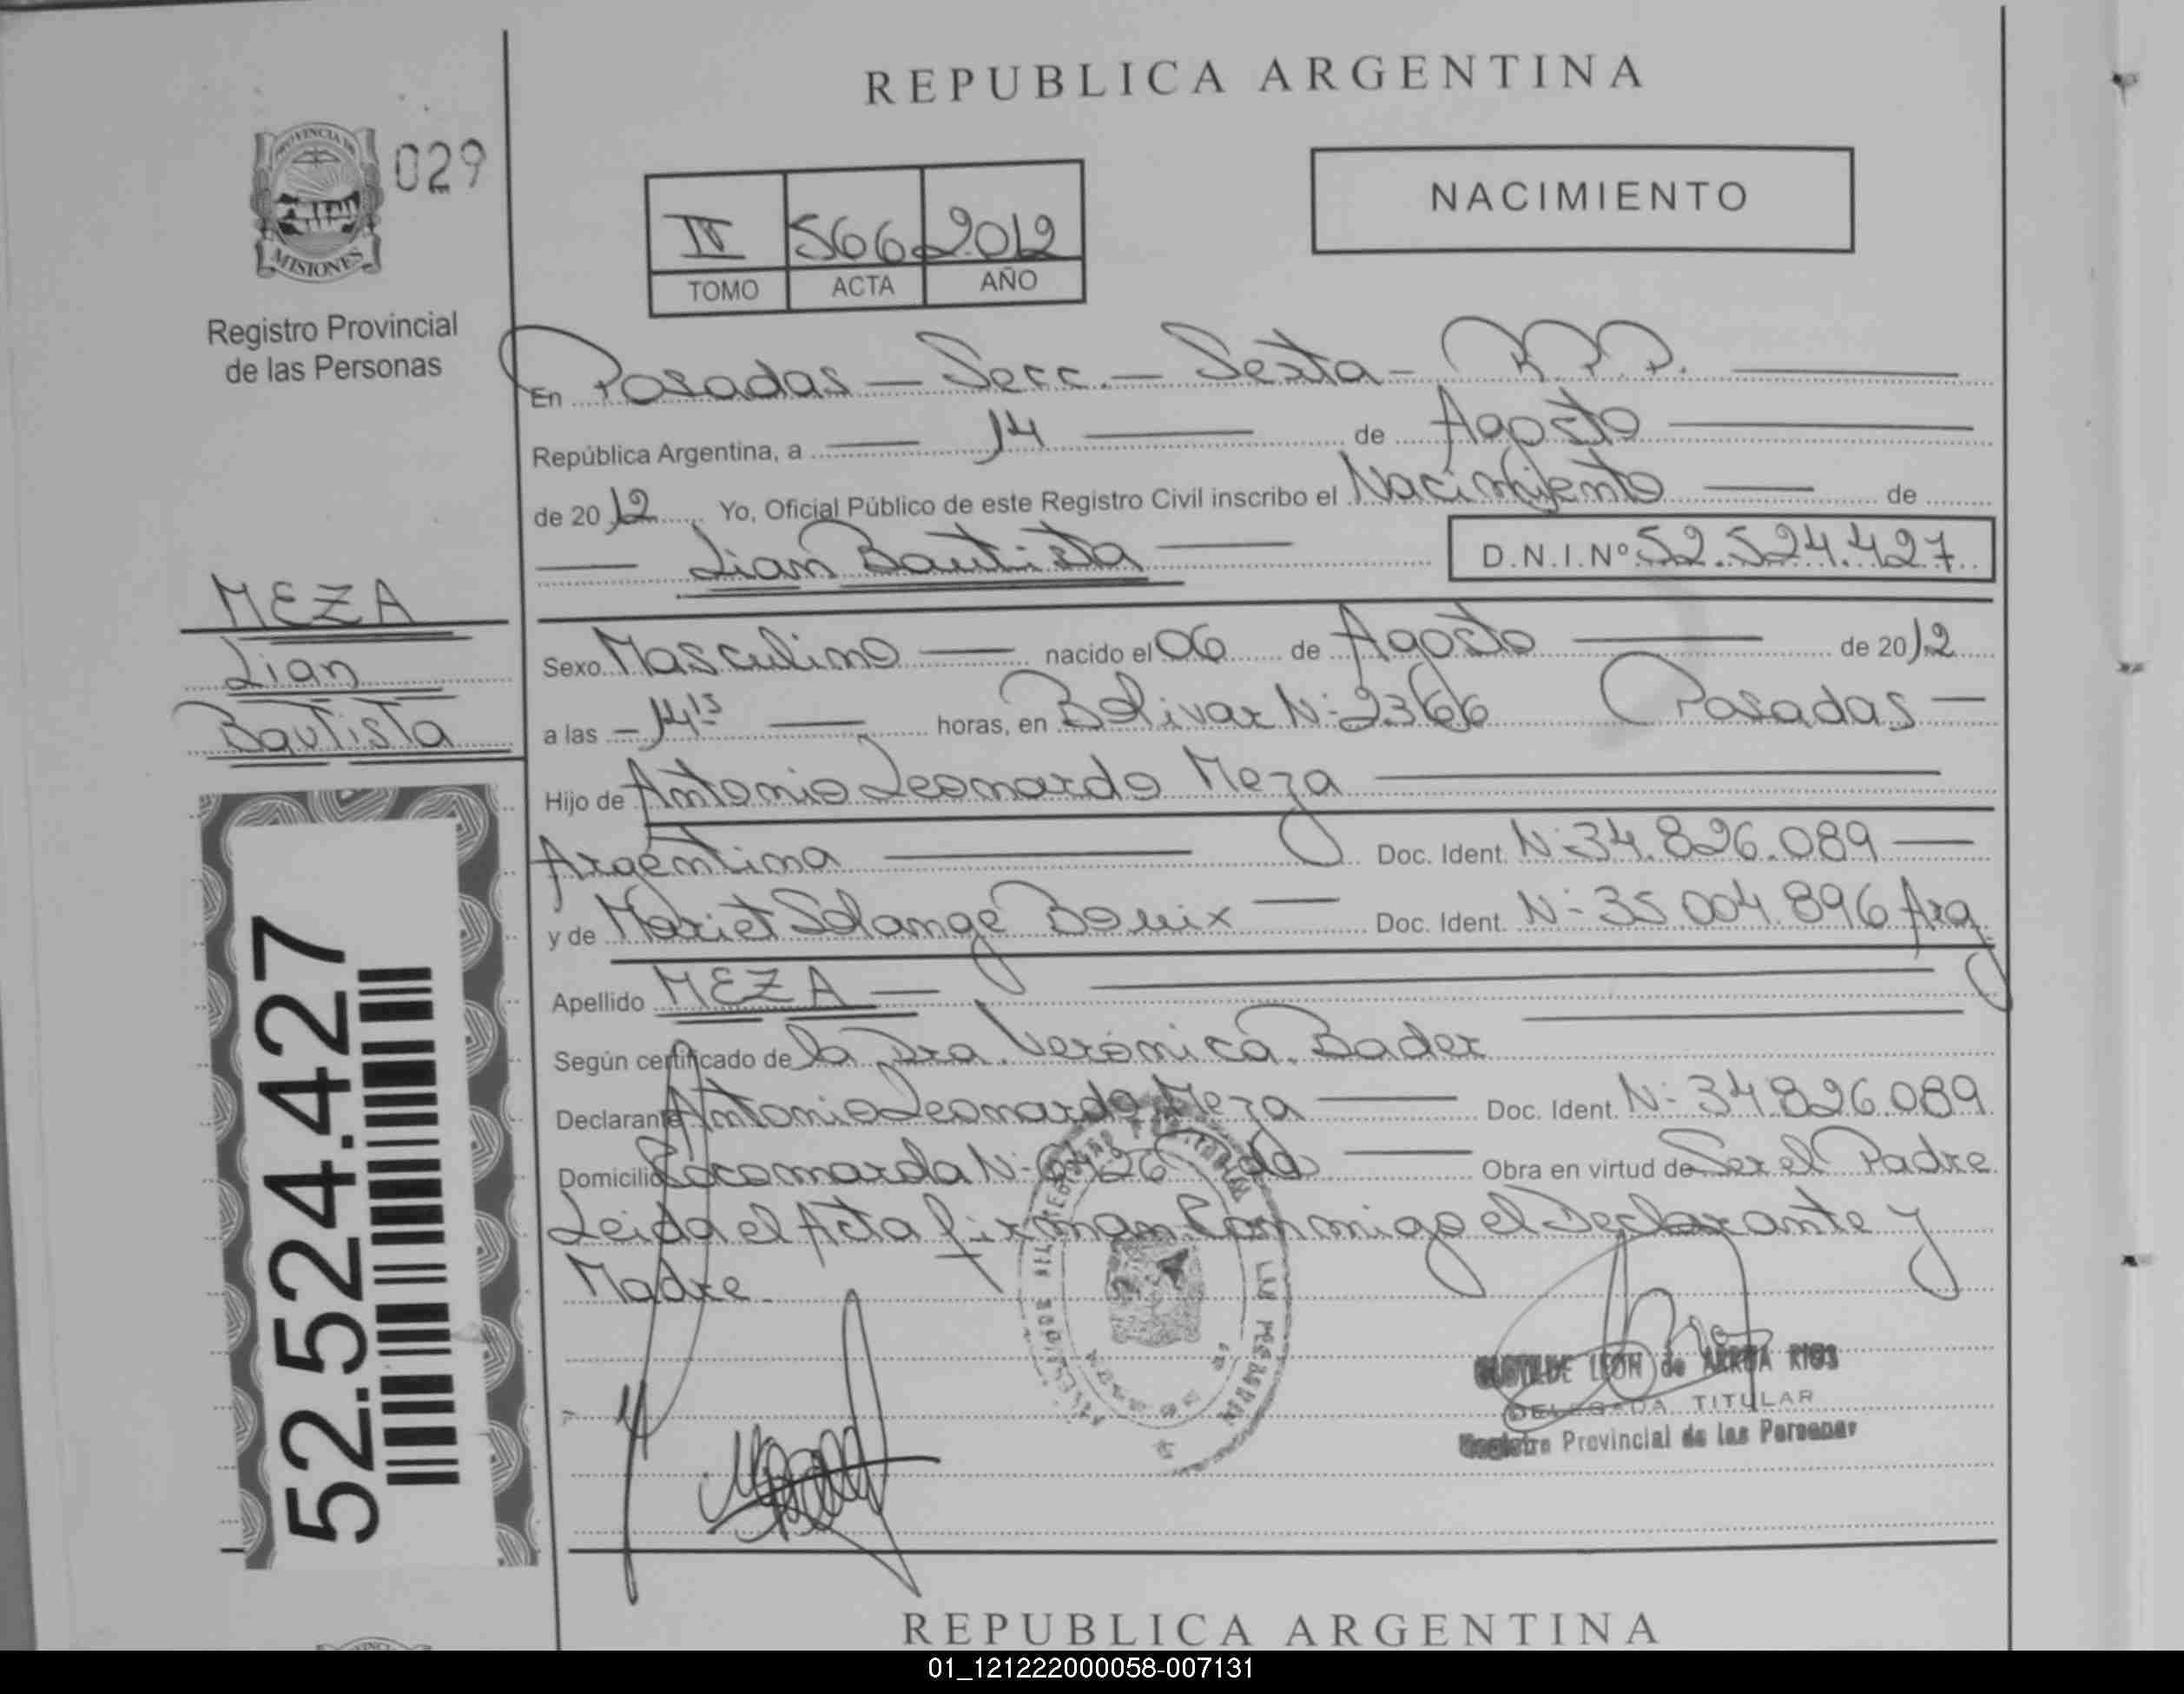 REPUBLICA ARGENTINA
PROVINCIA DE
MISIONES
029
Registro Provincial
de las Personas
NACIMIENTO
IV 566 2012
TOMO ACTA AÑO
En Posadas - Secc. - Sexta - R.P.P.
República Argentina, a 14 de Agosto
de 2012 Yo, Oficial Público de este Registro Civil inscribo el Nacimiento de
Lian Bautista D.N.I. Nº 52.524.427
MEZA
Lian
Bautista
Sexo Masculino nacido el 06 de Agosto de 2012
a las - 14 15 horas, en Bolivar N- 2366 Posadas -
Hijo de Antonio Leonardo Meza
Argentina Doc. Ident. N- 34.826.089
y de Mariet Solange Bouix Doc. Ident. N- 35.004.896 Arg
Apellido MEZA
Según certificado de la Dra. Verónica Bader
Declarante Antonio Leonardo Meza Doc. Ident. N- 34.826.089
Domicilio N- Obra en virtud de Ser el Padre
Leida el Acta firman Conmigo el Declarante y
Madre.
52.524.427
LEON de ARRUA RIOS
DELEGADA TITULAR
Registro Provincial de las Personas
REPUBLICA ARGENTINA
01_121222000058-007131